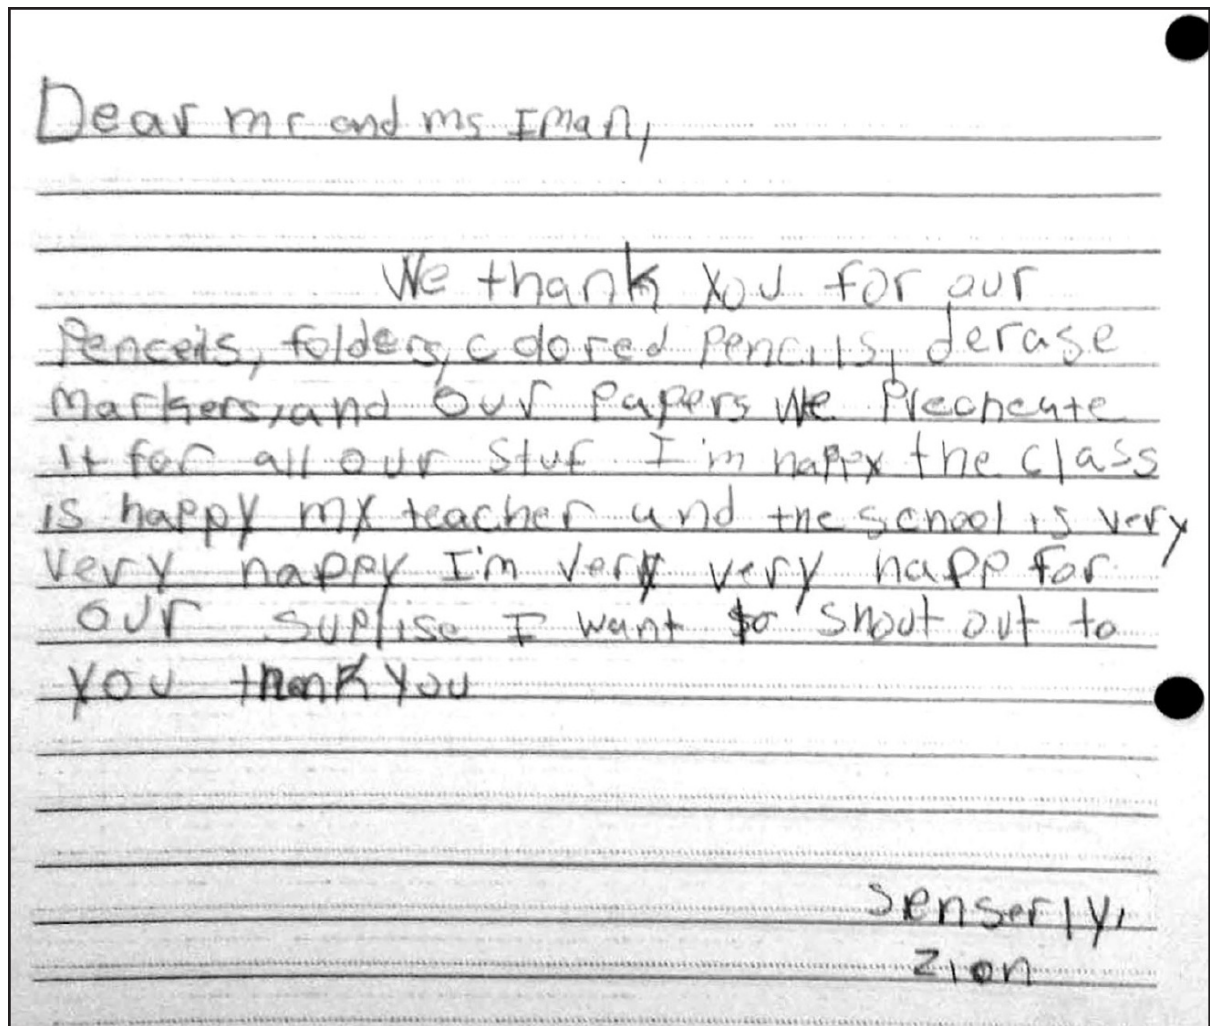 Dear mr and ms Iman,
We thank you for our
Penceils, folders, colored Pencils, derase
Markers, and our Papers We Precheate
it for all our stuf I'm happy the class
is happy my teacher and the school is very
Very happy I'm very very happ for
our suplise I want to shout out to
you thank you
senserly,
zion